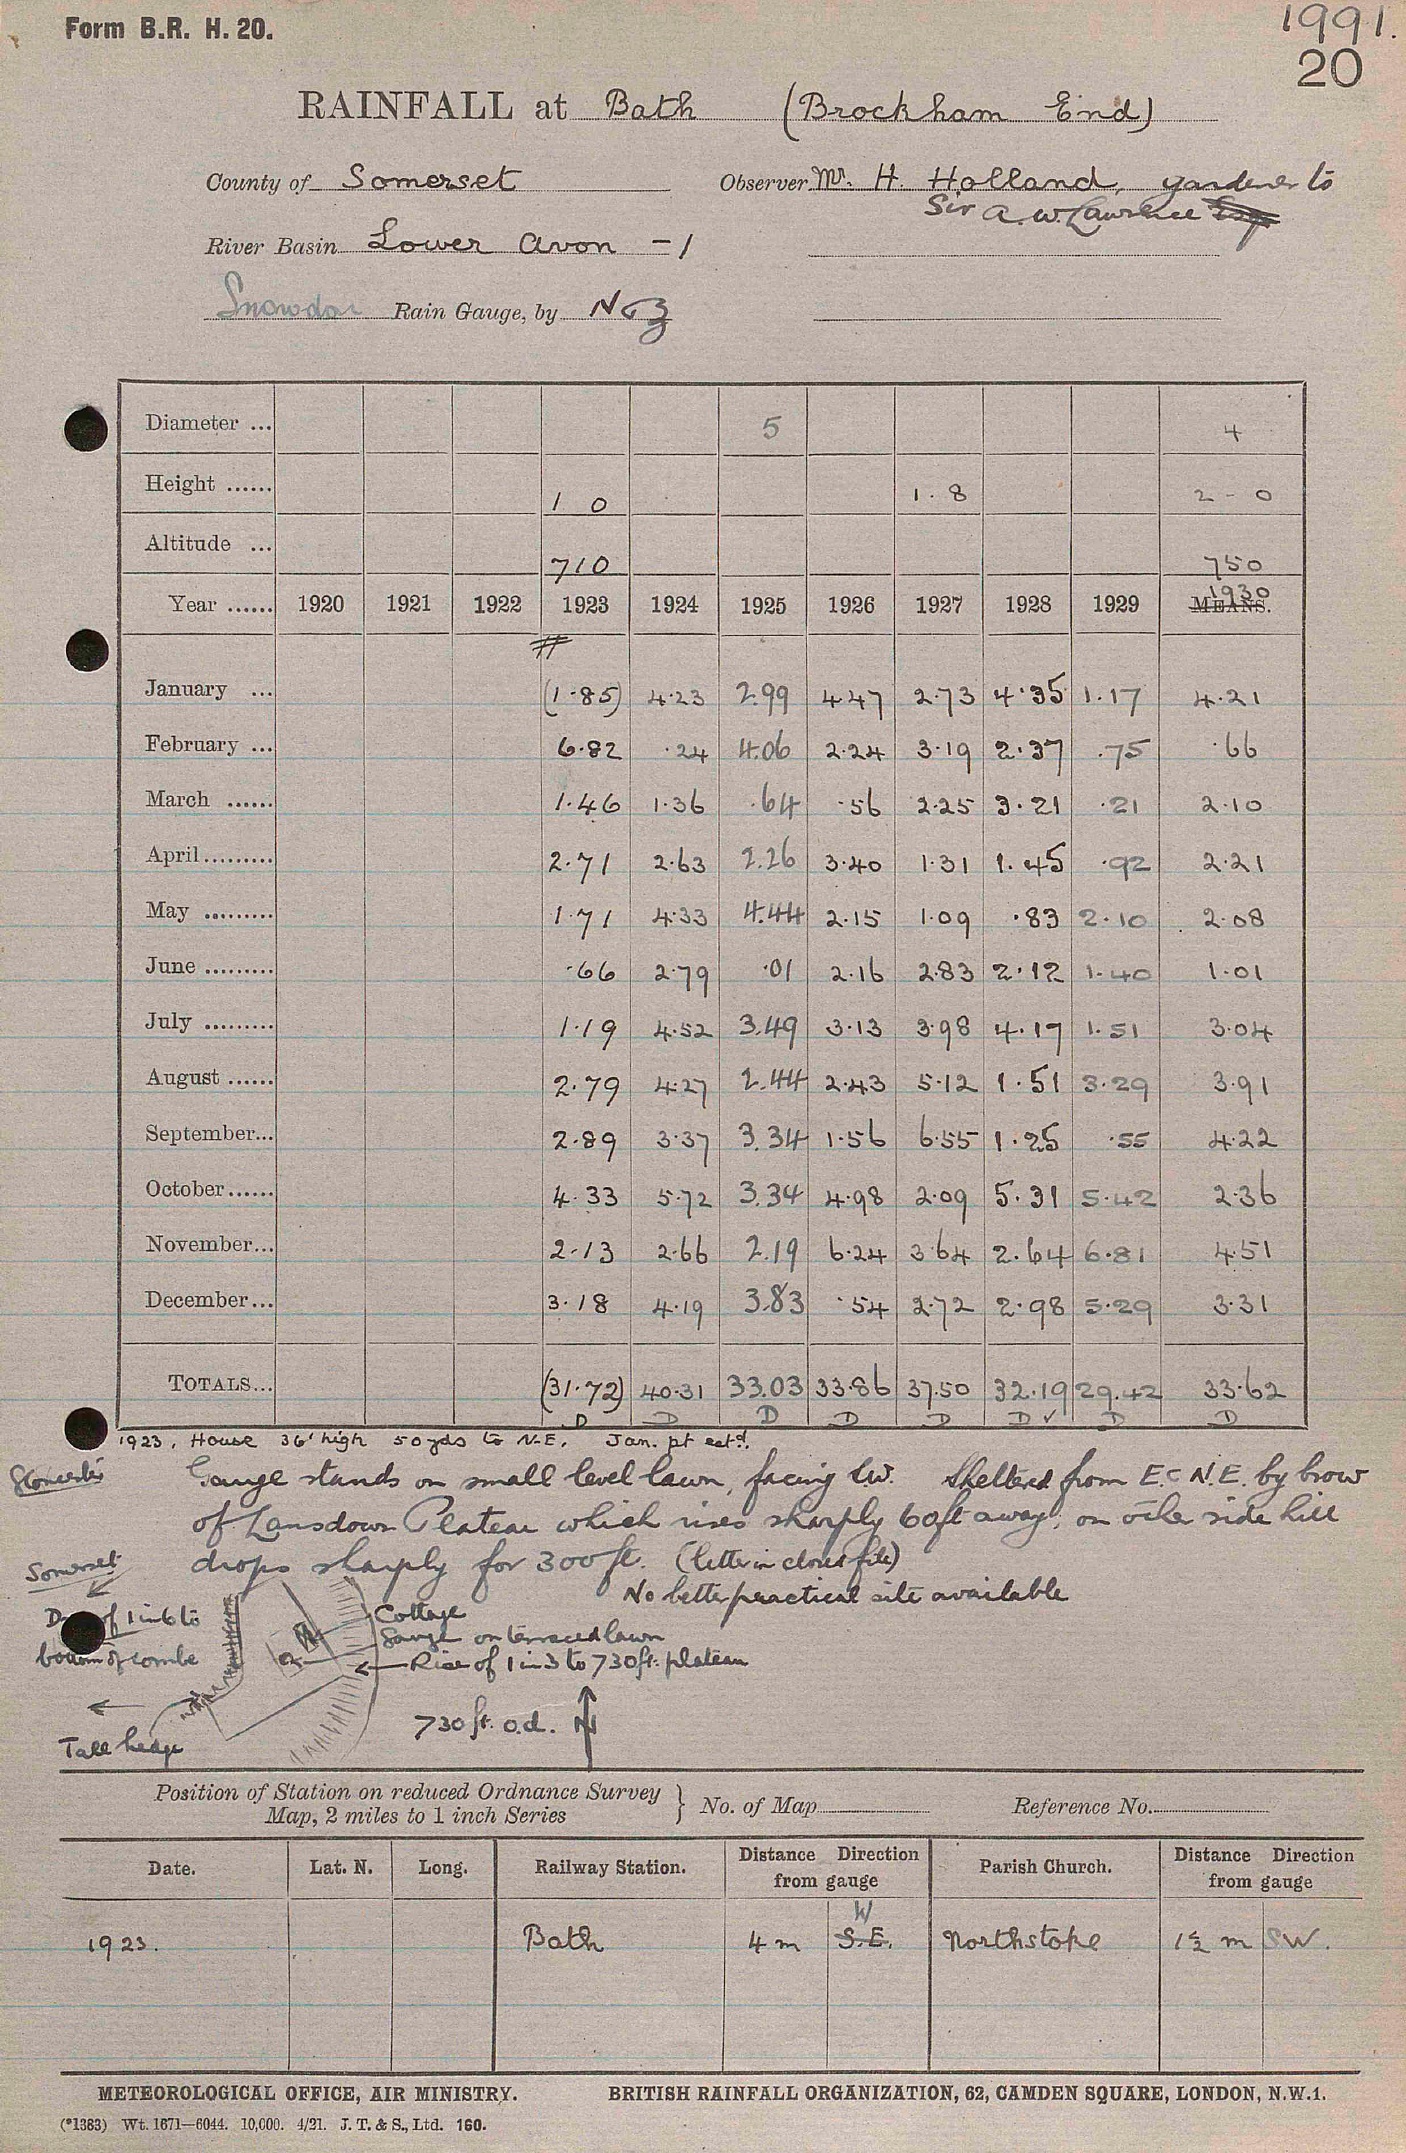 Form B.R. H. 20.
1991.
20
RAINFALL at Bath (Brockham End)
County of Somerset Observer Mr. H. Holland, gardener to
Sir A. W. Lawrence
River Basin Lower Avon - 1
Snowdon Rain Gauge, by N & Z
Diameter ... 5 4
Height ...... 1 0 1.8 2 - 0
Altitude ... 710 750
Year ...... 1920 1921 1922 1923 1924 1925 1926 1927 1928 1929 MEANS. 1930
January ... (1.85) 4.23 2.99 4.47 2.73 4.35 1.17 4.21
February ... 6.82 .24 4.06 2.24 3.19 2.37 .75 .66
March ...... 1.46 1.36 .64 .56 2.25 3.21 .21 2.10
April ......... 2.71 2.63 2.26 3.40 1.31 1.45 .92 2.21
May ......... 1.71 4.33 4.44 2.15 1.09 .83 2.10 2.08
June ......... .66 2.79 .01 2.16 2.83 2.12 1.40 1.01
July ......... 1.19 4.52 3.49 3.13 3.98 4.17 1.51 3.04
August ...... 2.79 4.27 2.44 2.43 5.12 1.51 3.29 3.91
September... 2.89 3.37 3.34 1.56 6.55 1.25 .55 4.22
October...... 4.33 5.72 3.34 4.98 2.09 5.31 5.42 2.36
November... 2.13 2.66 2.19 6.24 3.64 2.64 6.81 4.51
December... 3.18 4.19 3.83 .54 2.72 2.98 5.29 3.31
TOTALS... (31.72) 40.31 33.03 33.86 37.50 32.19 29.42 33.62
D D D D D D ✓ D D
1923, House 36' high 50 yds to N.E. Jan. pt estd.
Gloucester
Gauge stands on small level lawn, facing S.W. Sheltered from E. & N.E. by brow
of Lansdown Plateau which rises sharply 60ft away, on other side hill
drops sharply for 300ft. (letter in closed file)
Somerset
No better practical site available
of 1 in 6 to
bottom of combe
Cottage
Gauge on terraced lawn
Rise of 1 in 3 to 730ft. plateau
730 ft. o.d. N
Tall hedge
Position of Station on reduced Ordnance Survey
Map, 2 miles to 1 inch Series } No. of Map Reference No.
Date. Lat. N. Long. Railway Station. Distance Direction from gauge Parish Church. Distance Direction from gauge
1923. Bath 4 m S.E. W Northstoke 1½ m SW.
METEOROLOGICAL OFFICE, AIR MINISTRY. BRITISH RAINFALL ORGANIZATION, 62, CAMDEN SQUARE, LONDON, N.W.1.
(*1383) Wt. 1671—6044. 10,000. 4/21. J. T. & S., Ltd. 160.